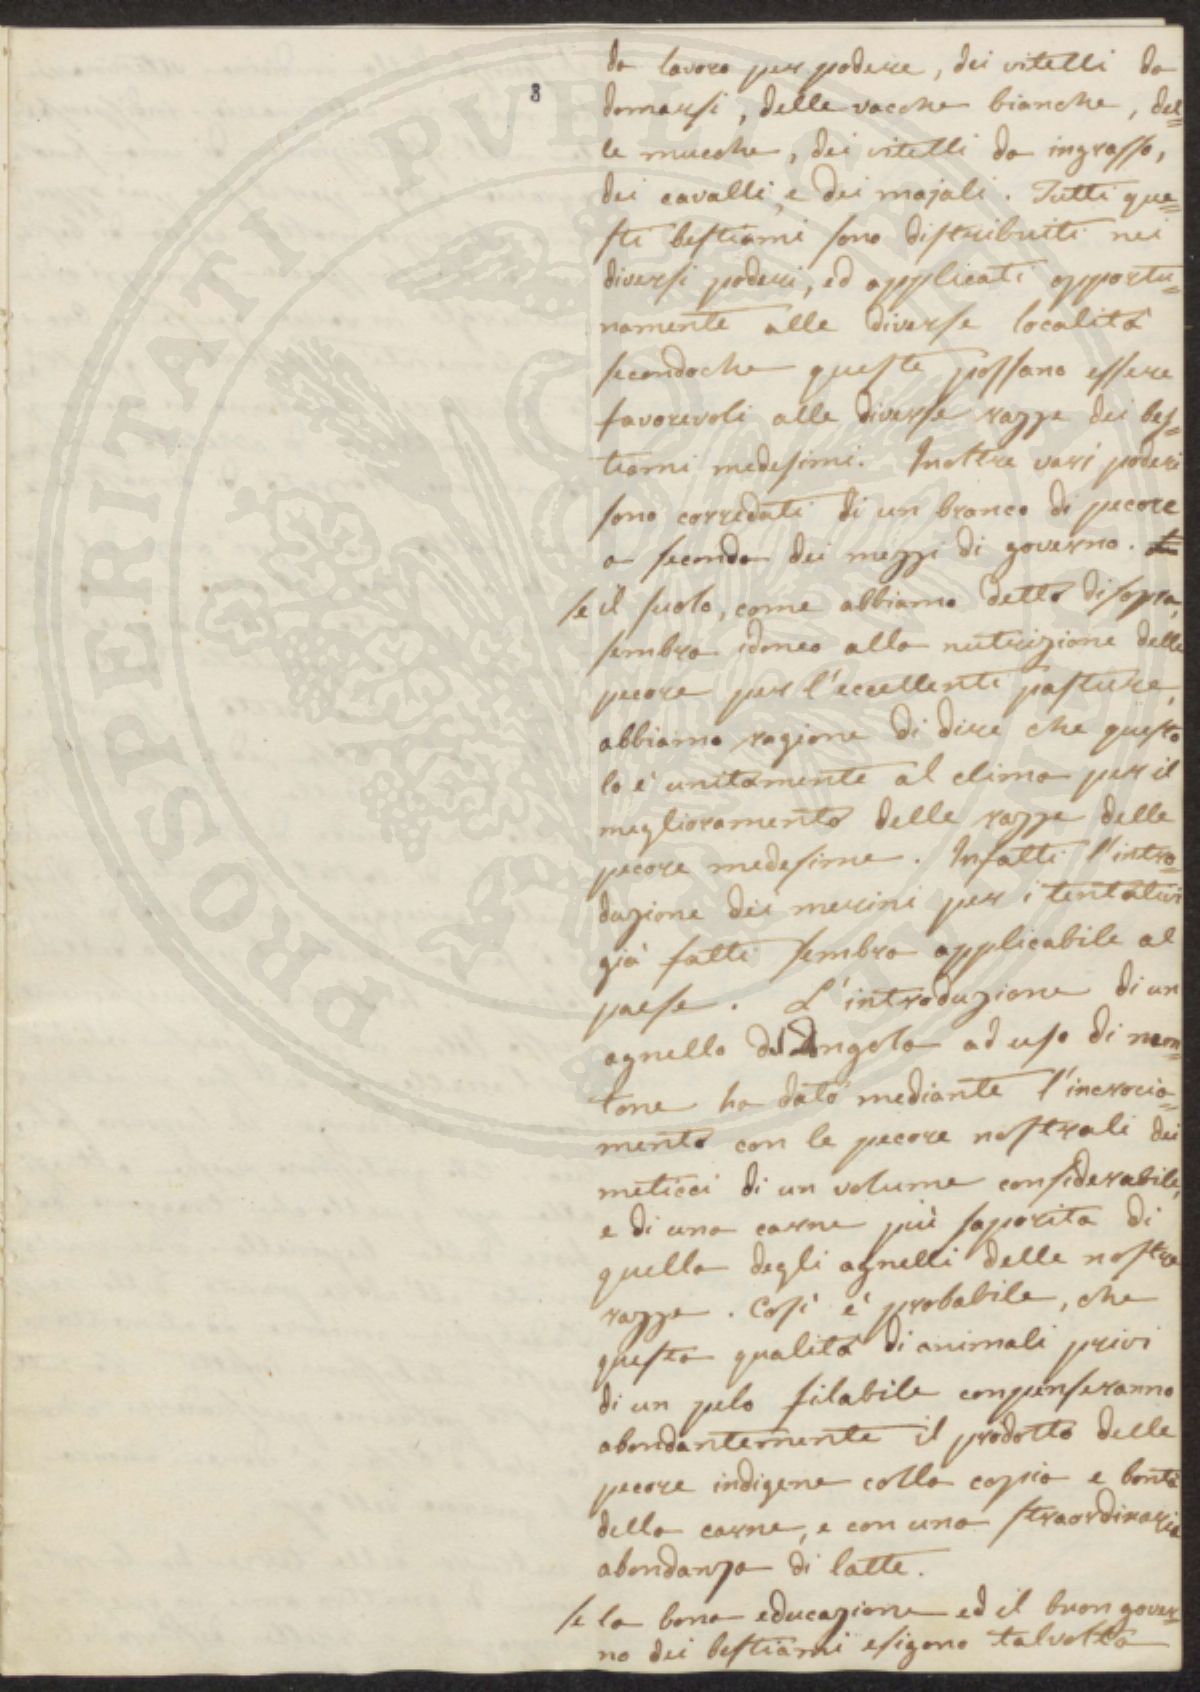 8
da lavoro per podere, dei vitelli da
domarsi, delle vacche bianche, del=
le mucche, dei vitelli da ingrasso,
dei cavalli, e dei majali. Tutti que=
sti bestiami sono distribuiti nei
diversi poderi, ed applicati opportu=
namente alle diverse località
secondoche queste possano essere
favorevoli alle diverse razze dei bes=
tiami medesimi. Inoltre varj poderi
sono corredati di un branco di pecore
a seconda dei mezzi di governo.
se il suolo, come abbiamo detto di sopra,
sembra idoneo alla nutrizione delle
pecore per l'eccellenti pasture,
abbiamo ragione di dire che questo
lo è unitamente al clima per il
miglioramento delle razze delle
pecore medesime. Infatti l'intro=
duzione dei merini per i tentativi
già fatti sembra applicabile al
paese. L'introduzione di un
agnello del Dongola ad uso di mon=
tone ha dato mediante l'incrocia=
mento con le pecore nostrali dei
meticci di un volume considerabile,
e di una carne più saporita di
quella degli agnelli delle nostre
razze. Così è probabile, che
questa qualità di animali privi
di un pelo filabile compenseranno
abondantemente il prodotto delle
pecore indigene colla copia e bontà
della carne, e con una straordinaria
abondanza di latte.
se la bona educazione ed il buon gover=
no dei bestiami esigono talvolta
PROSPERITATI PVBLI